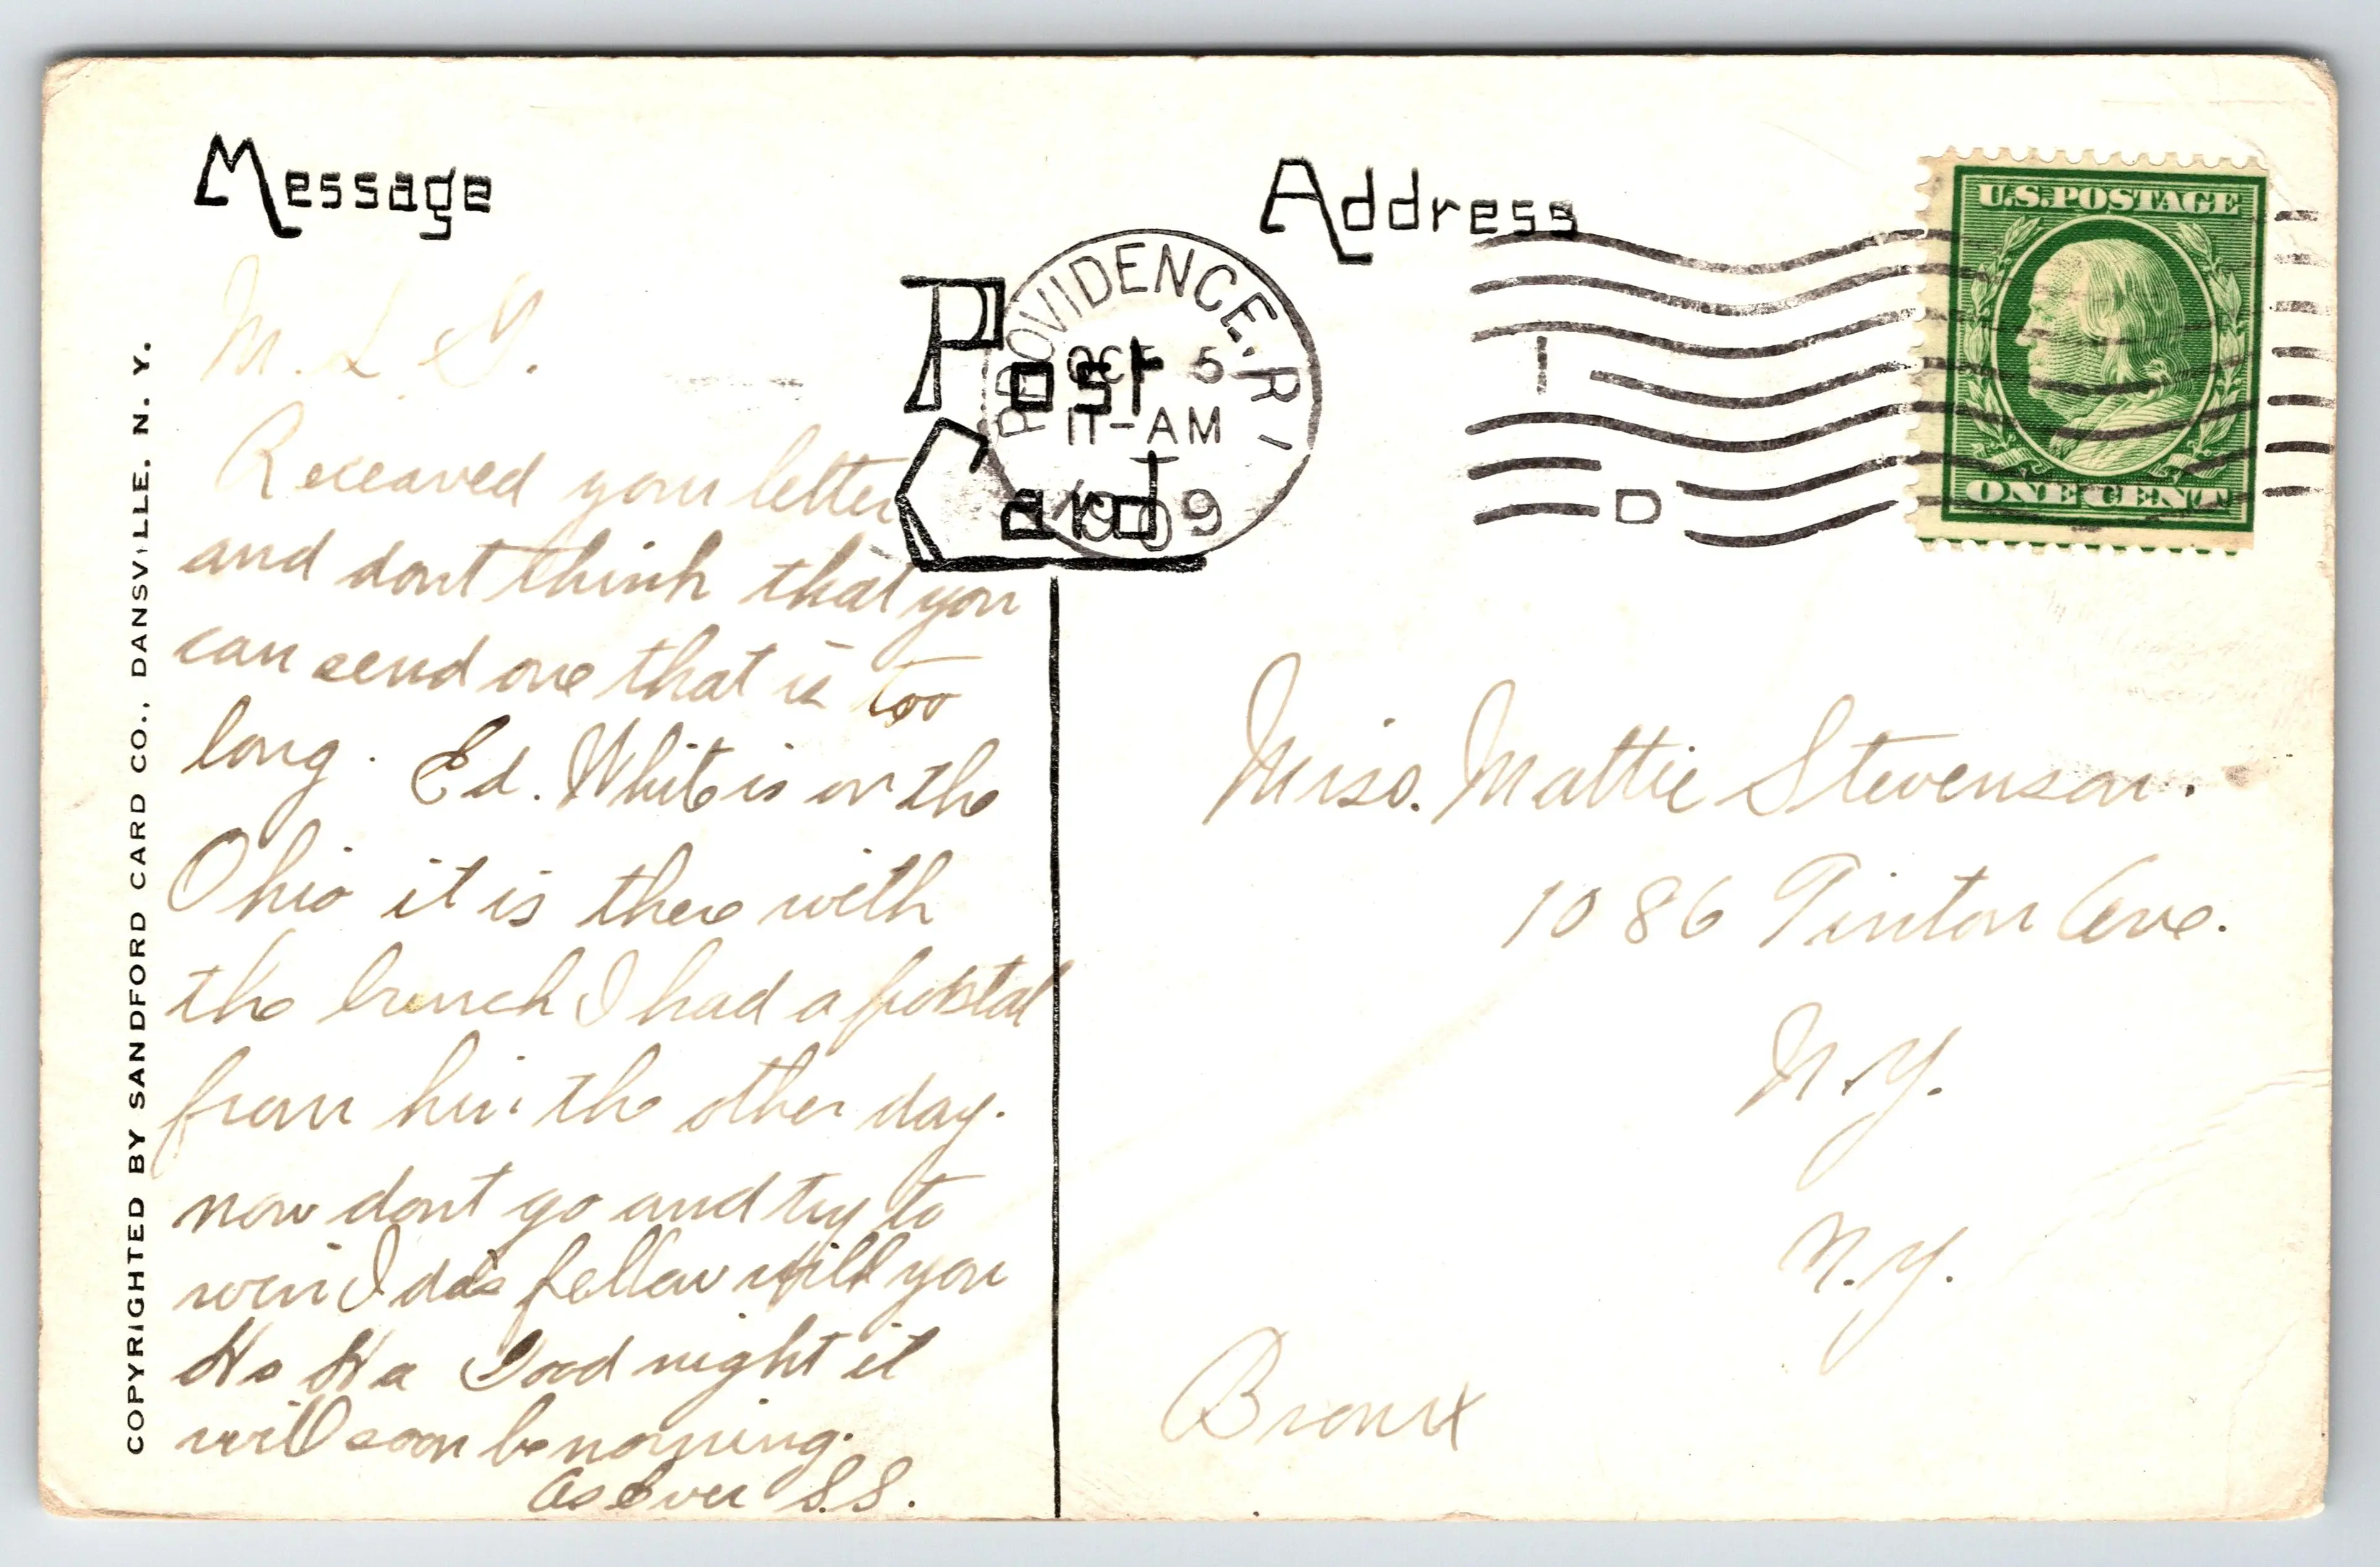 Message
Address
Post
Card
PROVIDENCE, R.I.
OCT 5
11-AM
1909
I
D
U.S. POSTAGE
ONE CENT
COPYRIGHTED BY SANDFORD CARD CO., DANSVILLE, N. Y.
M. L. G.
Receaved your letter
and dont think that you
can send one that is too
long. Ed. White is on the
Ohio it is there with
the bunch I had a postal
from him the other day.
now dont go and try to
win Idas fellow will you
Ha Ha Good night it
will soon be morning.
As Ever S.S.
Miss. Mattie Stevenson.
1086 Tinton Ave.
N.Y.
N.Y.
Bronx